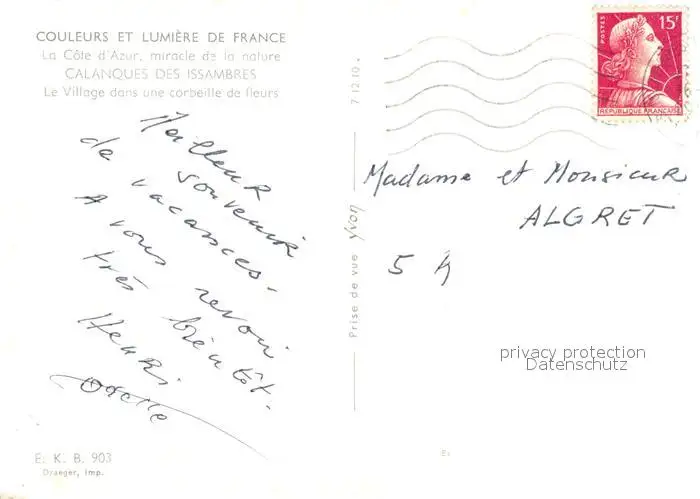 COULEURS ET LUMIÈRE DE FRANCE
La Côte d'Azur, miracle de la nature
CALANQUES DES ISSAMBRES
Le Village dans une corbeille de fleurs
Meilleur
souvenir
de vacances.
A vous revoir
très bientôt.
Henri
Odette
E. K. B. 903
Draeger, Imp.
7.12.10.
Prise de vue Yvon
POSTES
15F
REPUBLIQUE FRANÇAISE
Madame et Monsieur
ALGRET
5
privacy protection
Datenschutz